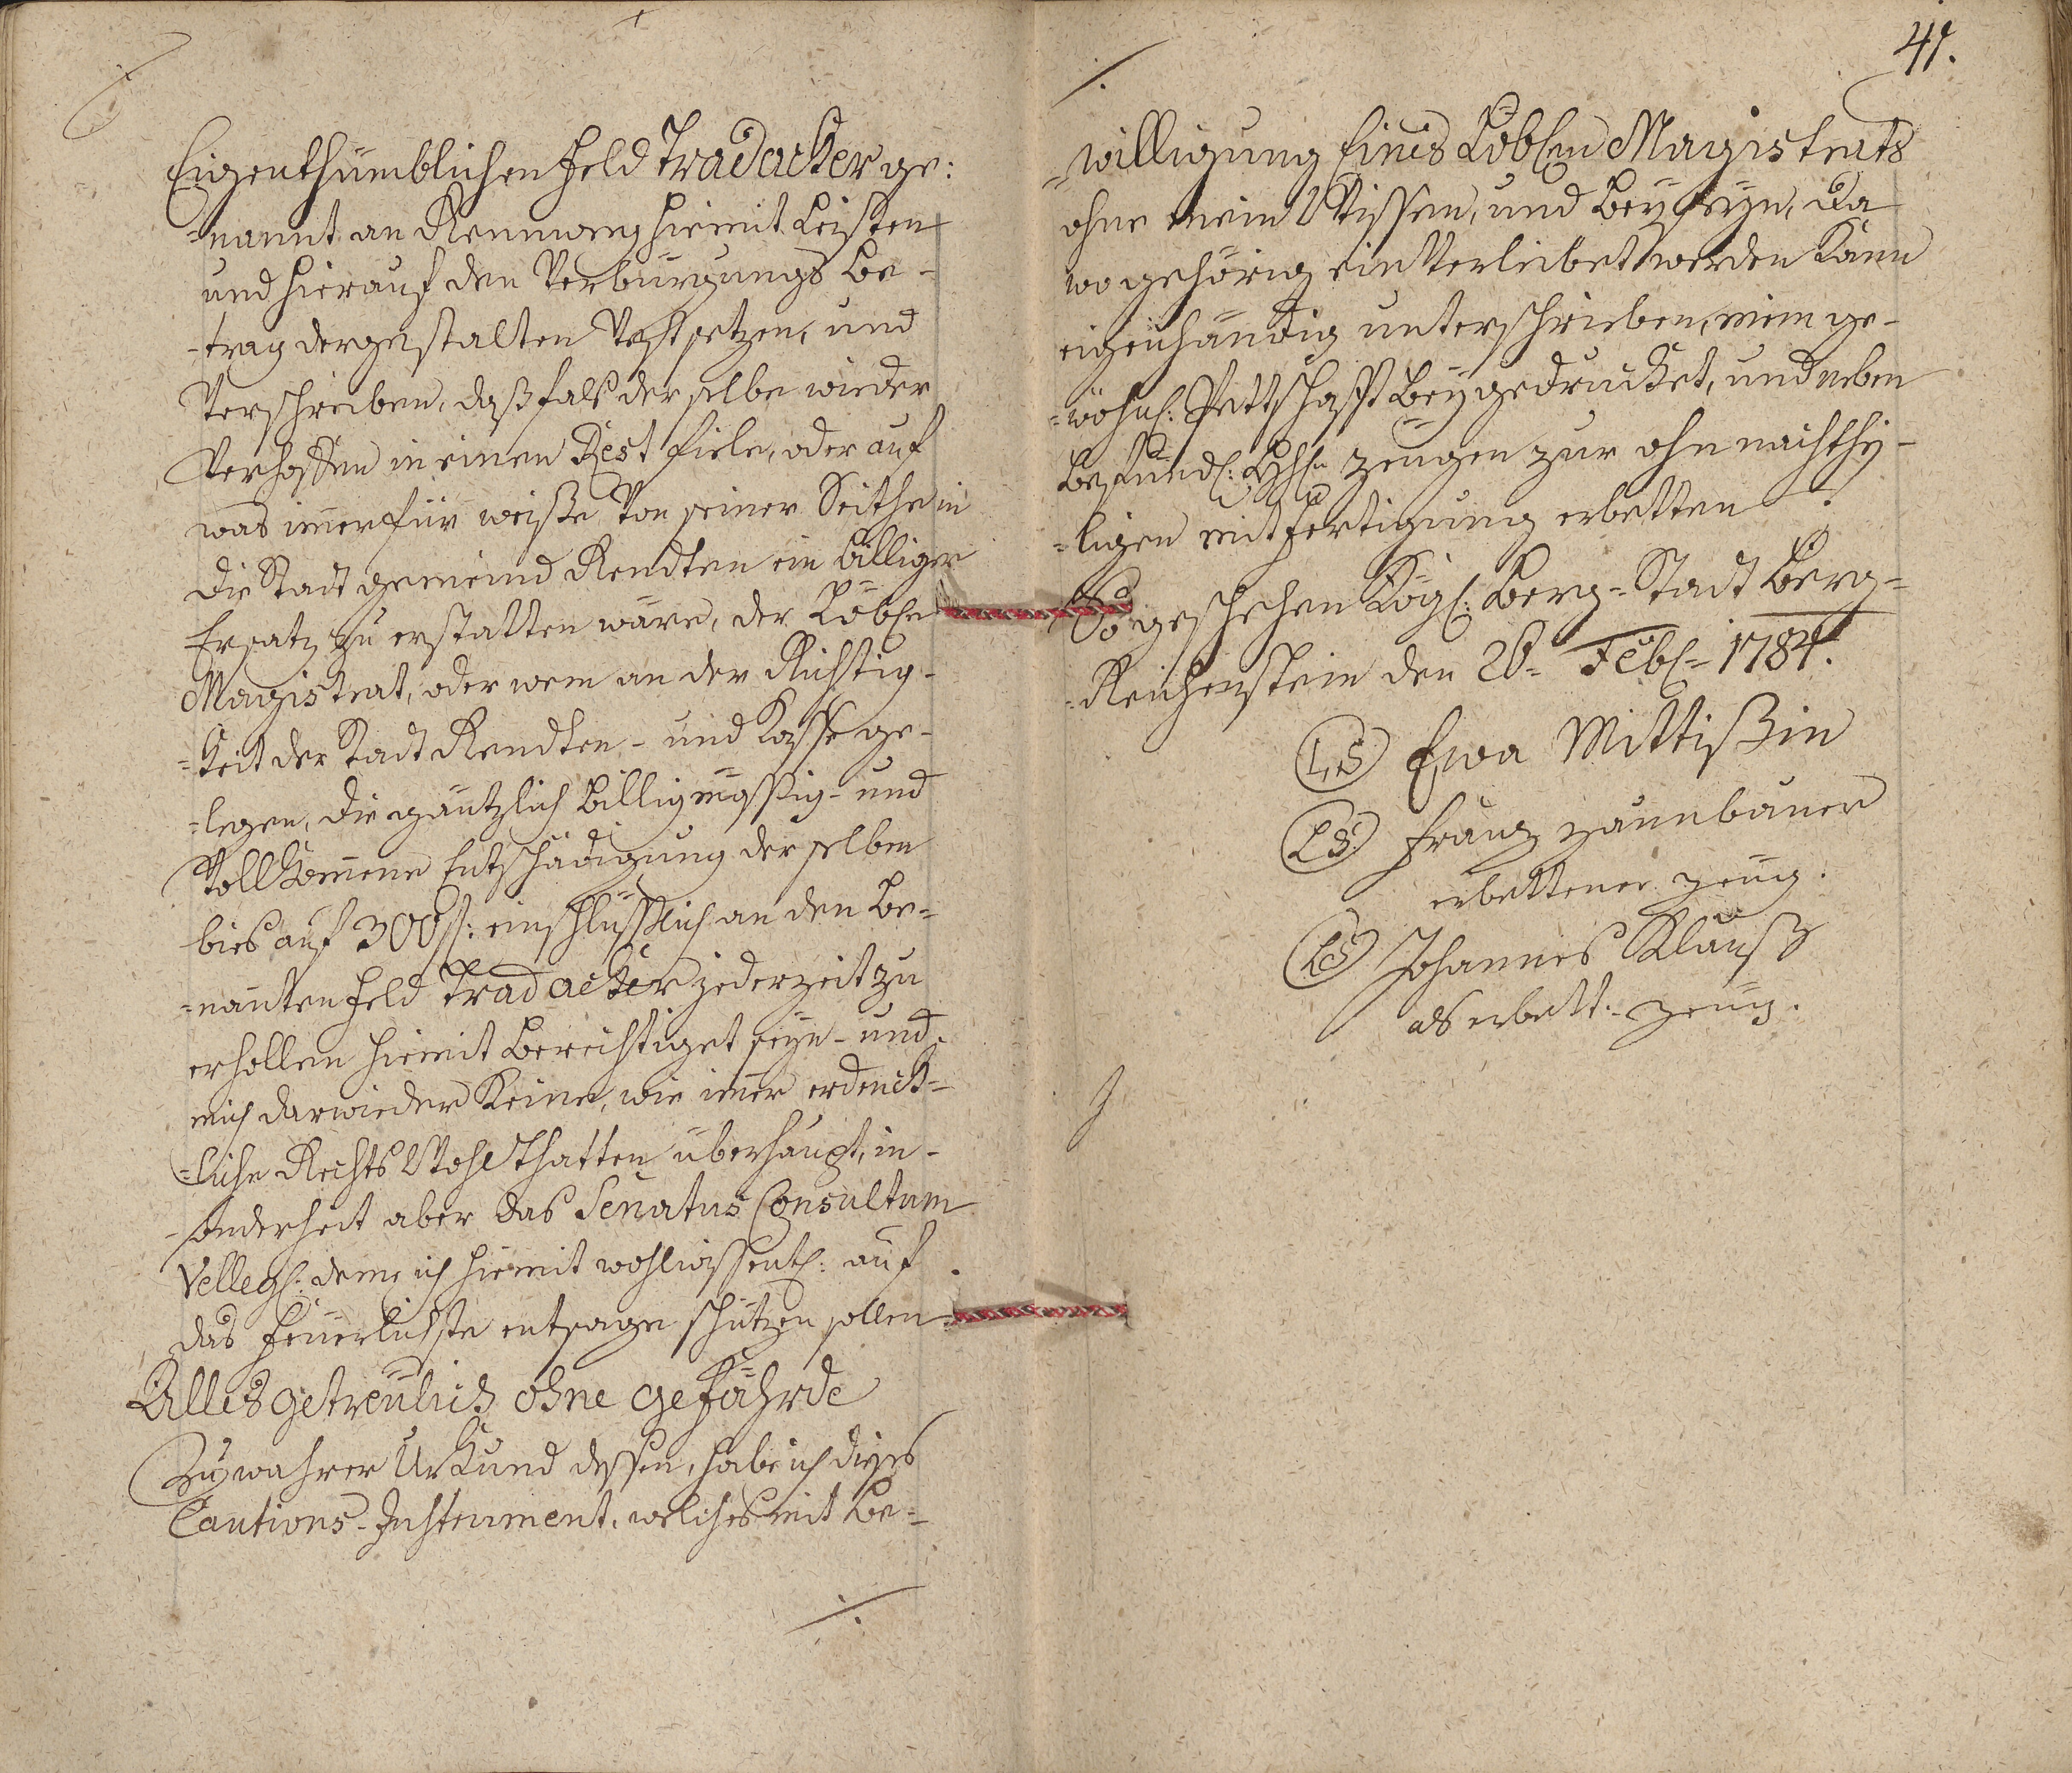 Eigenthümblichen Feld Tradacker ge:
=nannt an Rennweeg hiemit Leisten
und hierauf den Verbürgungs Be-
-trag dergestalten Vestsetzen, und
Verschreiben, daß fals derselbe wieder
Verhoffen in einen Rest fiele, oder auf
was imer für weiße Von seiner Seithe in
die Stadt gemeind Rendten ein billiger
Ersatz zu erstatten wäre, der Löble
Magistrat, oder wem an der Richtig-
=keit der Stadt Rendten- und Kasse ge-
=legen, die gäntzlich billigmässig- und
Vollkomene Entschädigung derselben
bies auf 300 f: einschlüsslich an den Be=
=nanten Feld Trad acker jederzeit zu
erhollen hiemit Berechtiget seyn- und
mich darwieder Keine, wie imer erdenck=
=liche Rechts Wohlthatten überhaupt, in-
-sonderheit aber das Senatus Consultum
Velleg: deme ich hiemit wohlwissentl: auf
das Feuerlichste entsage schützen sollen
Alles getreülich ohne gefährde
Zu wahrer Urkund dessen, habe ich dieses
Cautions-Instrument, welches mit Be=
./.
41.
./.
=willigung Eines Löblen Magistrats
ohne mein Wissen, und Beyseyn, da
wo gehörig ein Verleibet werden kann
eigenhändig unterschrieben, mein ge-
=wöhnl: Pettschafft Beygedrucket, und neben
Befundl: zeugen zur ohnnachthei-
=ligen mitfertigung erbetten
So geschehen Königl: Berg-Stadt Berg=
=Reichenstein den 28= Febl= 1784.
(L.S) Ewa Mittißin
(L.S.) Frantz zaunbauer
erbettener zeug.
(L.S) Johannes Klauß
als erbett: zeug.